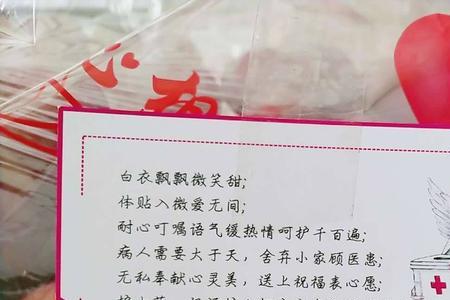 心
白衣飘飘微笑甜;
体贴入微爱无间;
耐心叮嘱语气缓热情呵护千百遍;
病人需要大于天，舍弃小家顾医患;
无私奉献心灵美，送上祝福表心愿;